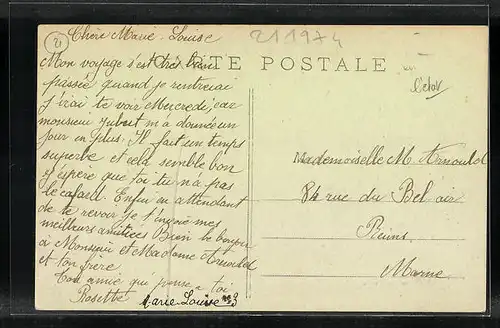 21
211974
Chère Marie-Louise
CARTE POSTALE
Mon voyage s'est très bien
passée quand je rentrerai
j'irai te voir Mercredi, car
monsieur Jubert m'a donnée un
jour en plus. Il fait un temps
superbe et cela semble bon
J'espère que toi tu n'a pas
le cafard. Enfin en attendant
de te revoir je t'envoie mes
meilleurs amitiées Bien le bonjour
à Monsieur et Madame Arnould
et ton frère.
Ton amie qui pense a toi
Rosette
Marie-Louise
Mademoiselle M. Arnould
84 rue du Bel air
Reims
Marne